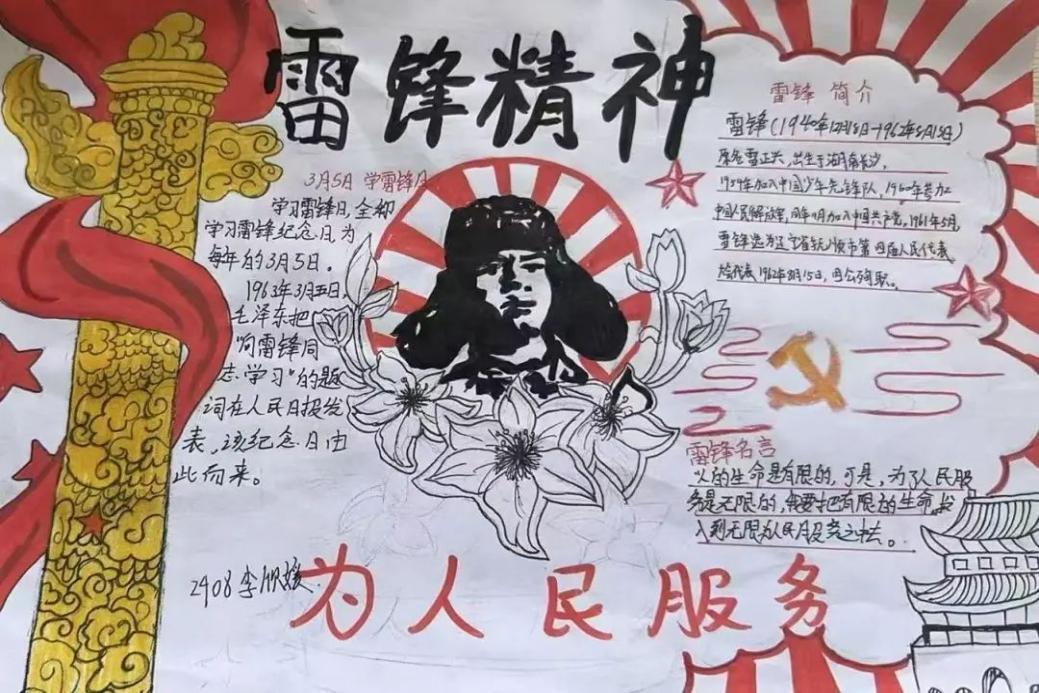 雷锋精神
3月5日 学雷锋日
学习雷锋日,全称
学习雷锋纪念日,为
每年的3月5日。
1963年3月五日,
毛泽东把
响雷锋同
志学习"的题
词在人民日报发
表,该纪念日由
此而来。
雷锋 简介
雷锋(1940年12月18日-1962年8月15日)
原名雷正兴,出生于湖南长沙,
1954年加入中国少年先锋队,1960年参加
中国人民解放军,同年11月加入中国共产党。1961年5月,
雷锋选为辽宁省抚顺市第四届人民代表
代表1962年8月15日,因公殉职。
雷锋名言
人的生命是有限的,可是,为人民服
务是无限的,我要把有限的生命,投
入到无限为人民服务之中去。
2408 李欣媛
为人民服务